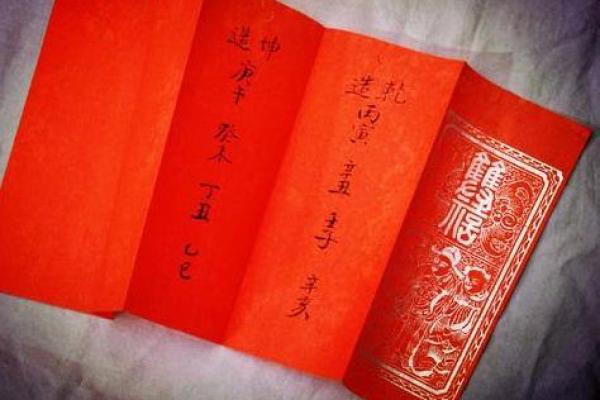 雙福
乾造
丙寅 辛丑 壬子 辛亥
坤造
庚午 癸未 丁丑 乙巳